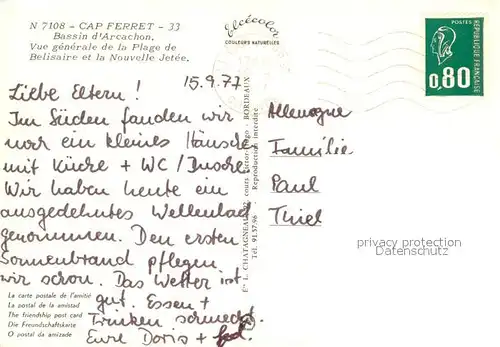 N 7108 - CAP FERRET - 33
Bassin d'Arcachon.
Vue générale de la Plage de
Belisaire et la Nouvelle Jetée.
elcécolor
COULEURS NATURELLES
POSTES
REPUBLIQUE FRANÇAISE
0,80
15.9.77
Liebe Eltern!
Im Süden fanden wir
noch ein kleines Häuschen
mit Küche + WC/Dusche.
Wir haben heute ein
ausgedehntes Wellenbad
genommen. Den ersten
Sonnenbrand pflegen
wir schon. Das Wetter ist
gut. Essen +
Trinken schmeckt.
Eure Doris +
Allemagne
Familie
Paul
Thiel
privacy protection
Datenschutz
La carte postale de l'amitié
La postal de la amistad
The friendship post card
Die Freundschaftskarte
O postal da amizade
Ets L. CHATAGNEAU, cours Victor-Hugo - BORDEAUX
Tél. 91.57.96 Reproduction interdite